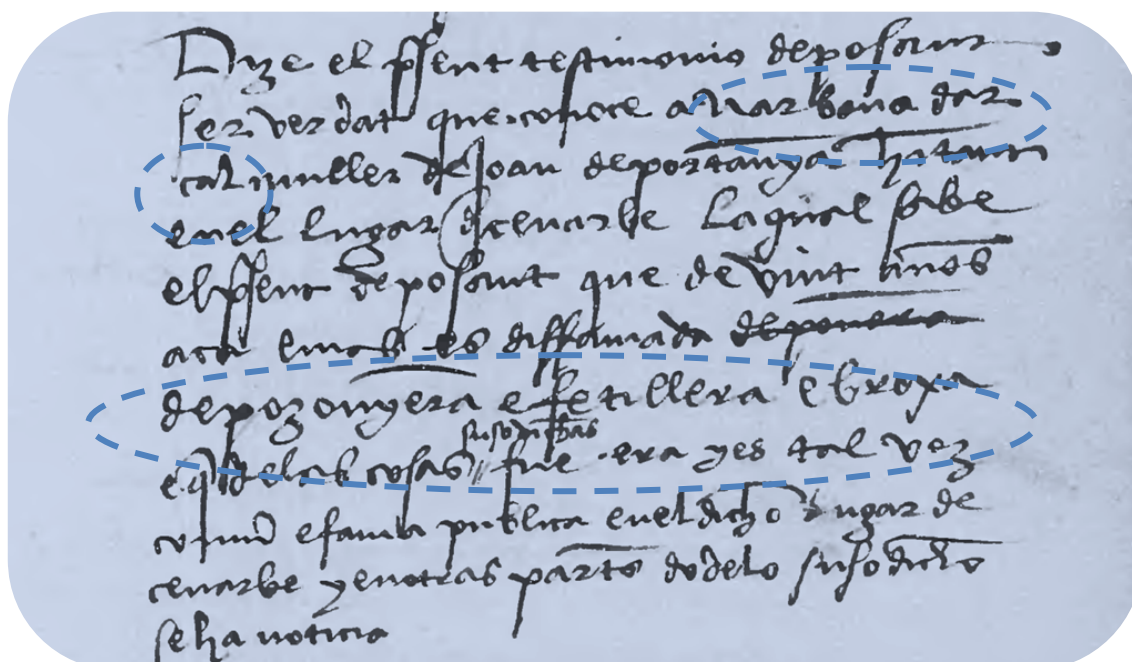 Dize el pñt testimonio deposant
ser verdat que conoce a Narbona dar
cal muller de Joan de portanya habitant
en el lugar de cenarbe La qual sabe
el pñt deposant que de vint anos
aca emas es diffamada deponeria
de pozonyera e fetillera e broxa
e q̃ de las cosas susodichas fue era yes tal vez
comũ e fama publica en el dicho Lugar de
cenarbe y en otras partes do de lo susodicho
se ha noticia